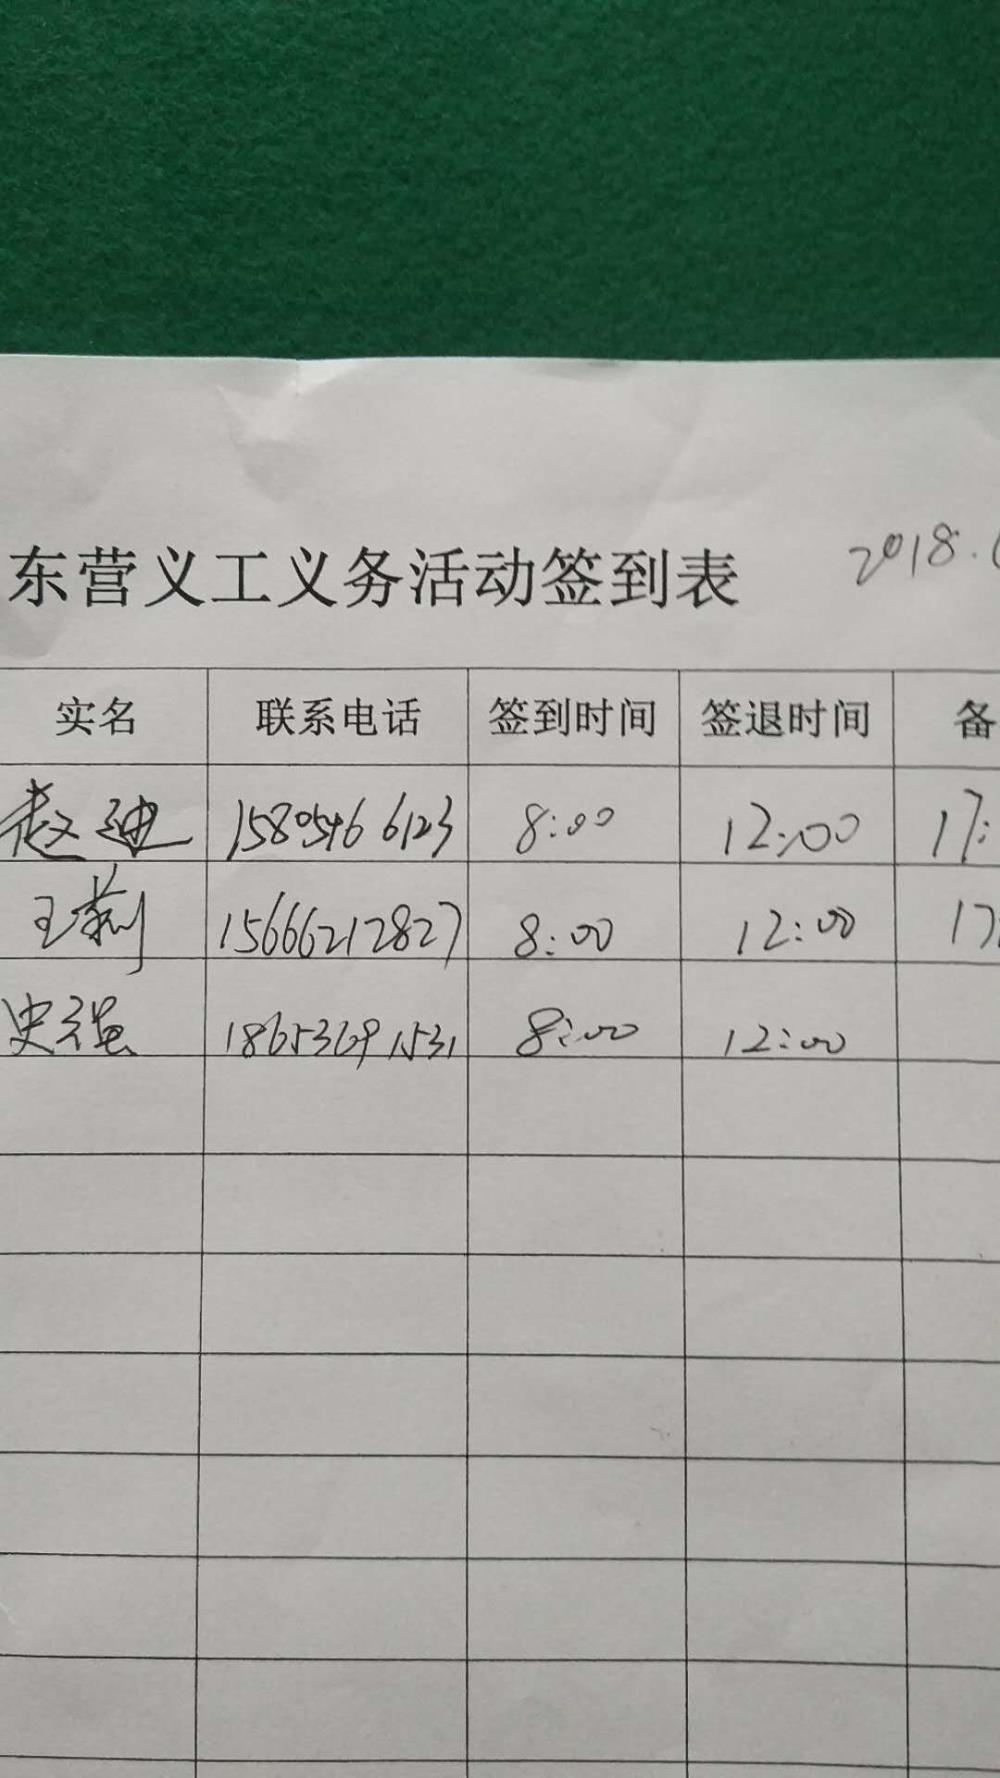 东营义工义务活动签到表 2018.
实名 联系电话 签到时间 签退时间 备
赵迪 15805466123 8:00 12:00 17:
王莉 15666212827 8:00 12:00 17:
史强 18653691531 8:00 12:00